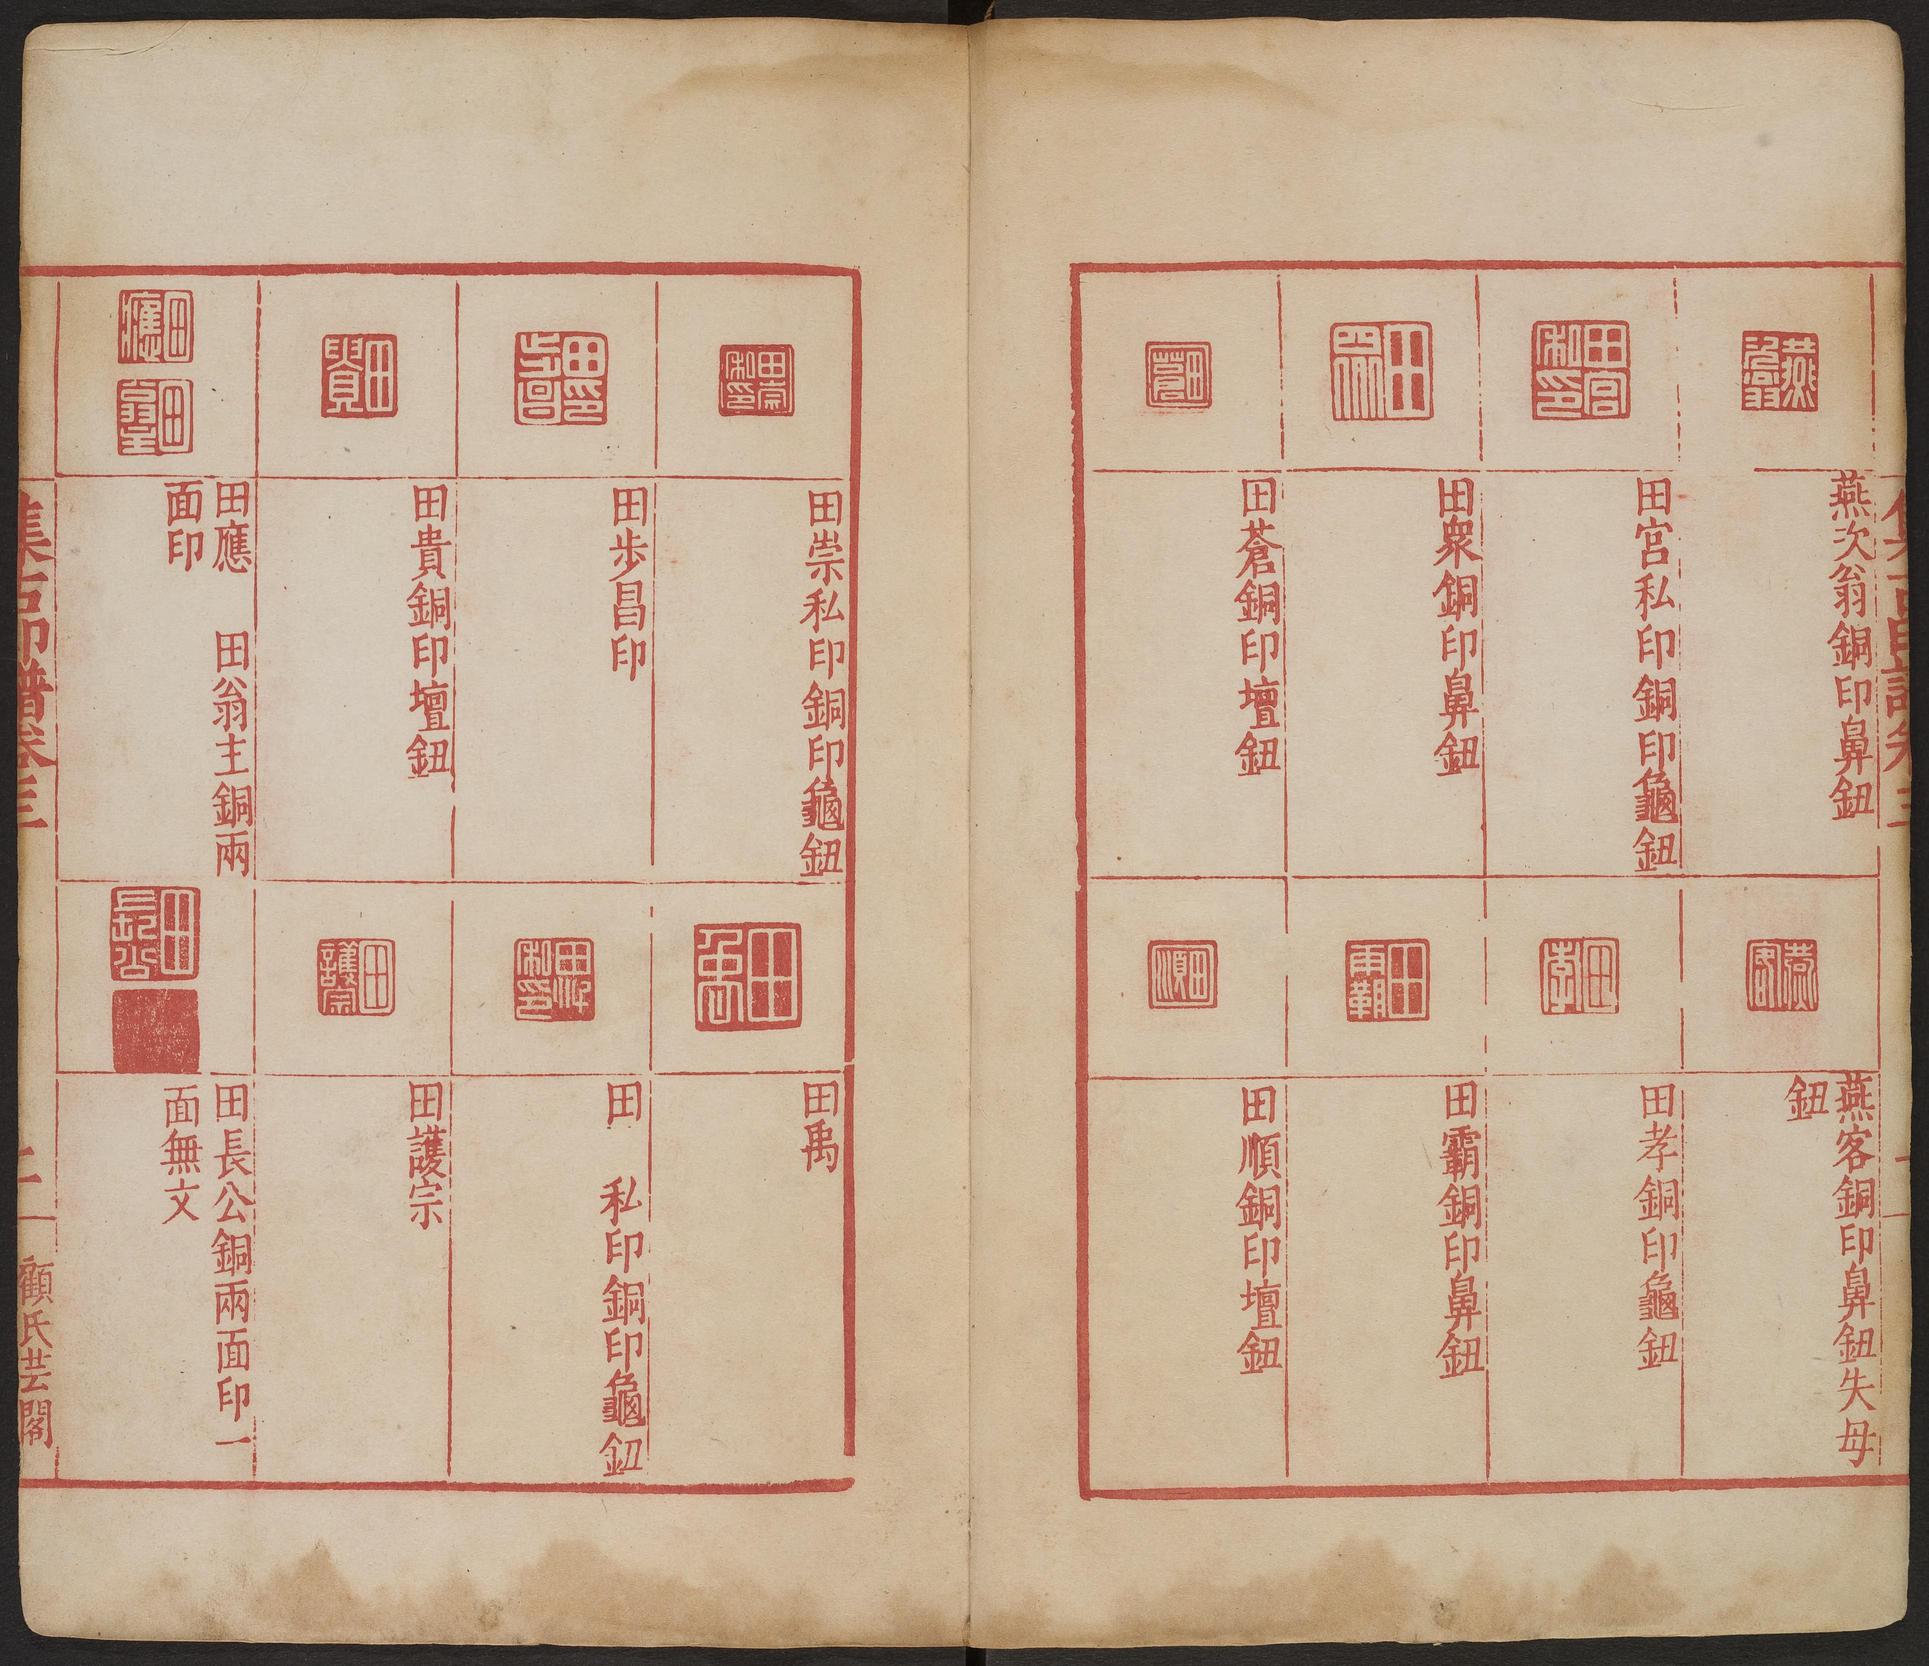 燕次翁銅印鼻鈕
田宮私印銅印龜鈕
田衆銅印鼻鈕
田蒼銅印壇鈕
燕客銅印鼻鈕失母
鈕
田孝銅印龜鈕
田霸銅印鼻鈕
田順銅印壇鈕
田崇私印銅印龜鈕
田步昌印
田貴銅印壇鈕
田應　田翁主銅兩
面印
田禹
田　私印銅印龜鈕
田護宗
田長公銅兩面印一
面無文
集古印譜卷三
二
顧氏芸閣